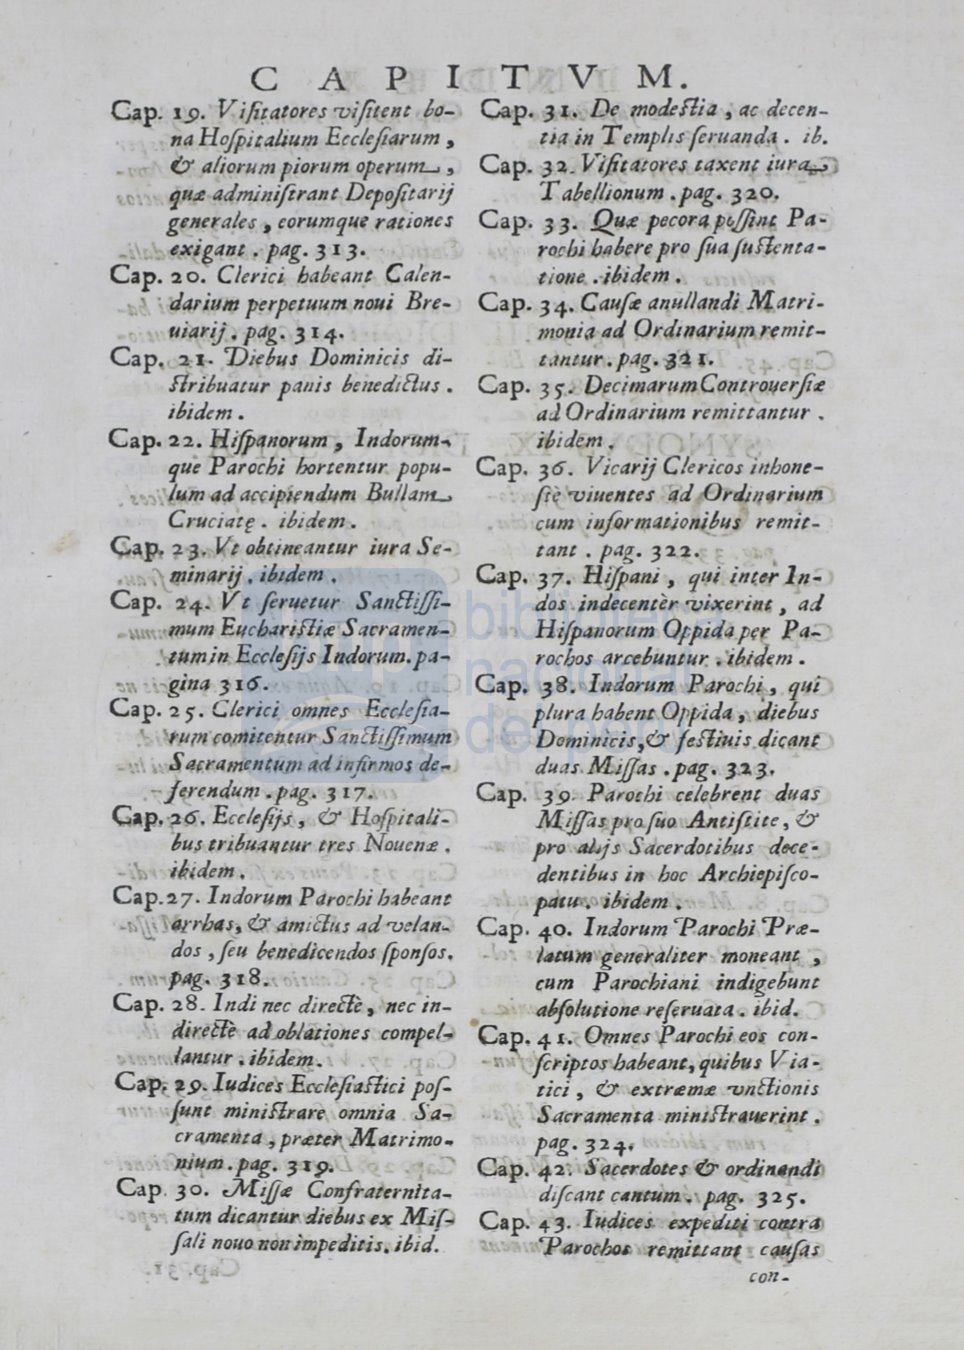 CAPITVM.
Cap. 19. Viſitatores viſitent bo-
na Hoſpitalium Eccleſiarum,
& aliorum piorum operum,
quæ adminiſtrant Depoſitarij
generales, eorumque rationes
exigant. pag. 313.
Cap. 20. Clerici habeant Calen-
darium perpetuum noui Bre-
uiarij. pag. 314.
Cap. 21. Diebus Dominicis di-
ſtribuatur panis benedictus.
ibidem.
Cap. 22. Hiſpanorum, Indorum-
que Parochi hortentur popu-
lum ad accipiendum Bullam
Cruciatę. ibidem.
Cap. 23. Vt obtineantur iura Se-
minarij. ibidem.
Cap. 24. Vt ſeruetur Sanctiſſi-
mum Euchariſtiæ Sacramen-
tum in Eccleſijs Indorum. pa-
gina 316.
Cap. 25. Clerici omnes Eccleſia-
rum comitentur Sanctiſſimum
Sacramentum ad infirmos de-
ferendum. pag. 317.
Cap. 26. Eccleſijs, & Hoſpitali-
bus tribuantur tres Nouenæ.
ibidem.
Cap. 27. Indorum Parochi habeant
arrhas, & amictus ad velan-
dos, ſeu benedicendos ſponſos.
pag. 318.
Cap. 28. Indi nec directè, nec in-
directè ad oblationes compel-
lantur. ibidem.
Cap. 29. Iudices Eccleſiaſtici poſ-
ſunt miniſtrare omnia Sa-
cramenta, præter Matrimo-
nium. pag. 319.
Cap. 30. Miſſæ Confraternita-
tum dicantur diebus ex Miſ-
ſali nouo non impeditis. ibid.
Cap. 31. De modeſtia, ac decen-
tia in Templis ſeruanda. ib.
Cap. 32. Viſitatores taxent iura
Tabellionum. pag. 320.
Cap. 33. Quæ pecora poſſint Pa-
rochi habere pro ſua ſuſtenta-
tione. ibidem.
Cap. 34. Cauſæ anullandi Matri-
monia ad Ordinarium remit-
tantur. pag. 321.
Cap. 35. Decimarum Controuerſiæ
ad Ordinarium remittantur.
ibidem.
Cap. 36. Vicarij Clericos inhone-
ſtè viuentes ad Ordinarium
cum informationibus remit-
tant. pag. 322.
Cap. 37. Hiſpani, qui inter In-
dos indecentèr vixerint, ad
Hiſpanorum Oppida per Pa-
rochos arcebuntur. ibidem.
Cap. 38. Indorum Parochi, qui
plura habent Oppida, diebus
Dominicis, & feſtiuis dicant
duas Miſſas. pag. 323.
Cap. 39. Parochi celebrent duas
Miſſas pro ſuo Antiſtite, &
pro alijs Sacerdotibus dece-
dentibus in hoc Archiepiſco-
patu. ibidem.
Cap. 40. Indorum Parochi Præ-
latum generaliter moneant,
cum Parochiani indigebunt
abſolutione reſeruata. ibid.
Cap. 41. Omnes Parochi eos con-
ſcriptos habeant, quibus Via-
tici, & extræmæ vnctionis
Sacramenta miniſtrauerint.
pag. 324.
Cap. 42. Sacerdotes & ordinandi
diſcant cantum. pag. 325.
Cap. 43. Iudices expediti contra
Parochos remittant cauſas
con-